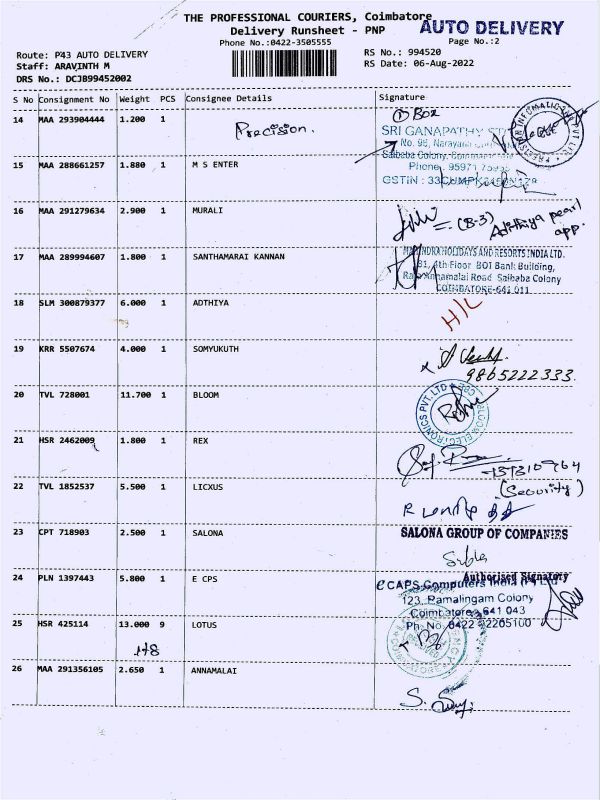 THE PROFESSIONAL COURIERS, Coimbatore
Delivery Runsheet - PNP
AUTO DELIVERY
Phone No.:0422-3505555
Page No.:2
Route: P43 AUTO DELIVERY
RS No.: 994520
Staff: ARAVINTH M
RS Date: 06-Aug-2022
DRS No.: DCJB99452002
S No Consignment No Weight PCS Consignee Details Signature
14 MAA 293904444 1.200 1 Precision.
① Box
SRI GANAPATHY
No. 96, Narayana
Saibaba Colony,
Phone
GSTIN :
15 MAA 288661257 1.880 1 M S ENTER
16 MAA 291279634 2.900 1 MURALI
(B-3) Adithiya pearl
app.
17 MAA 289994607 1.800 1 SANTHAMARAI KANNAN
HOLIDAYS AND RESORTS INDIA LTD.
81, 4th Floor BOI Bank Building,
Road Saibaba Colony
COIMBATORE-641 011
18 SLM 300879377 6.000 1 ADTHIYA
H/L
19 KRR 5507674 4.000 1 SOMYUKUTH
9865222333.
20 TVL 728001 11.700 1 BLOOM
21 HSR 2462009 1.800 1 REX
(Security)
22 TVL 1852537 5.500 1 LICXUS
23 CPT 718903 2.500 1 SALONA
SALONA GROUP OF COMPANIES
Authorised Signatory
24 PLN 1397443 5.800 1 E CPS
eCAPS Computers India (P) Ltd
123, Ramalingam Colony
Coimbatore 641 043
Ph. No. 0422 2205100
25 HSR 425114 13.000 9 LOTUS
26 MAA 291356105 2.650 1 ANNAMALAI